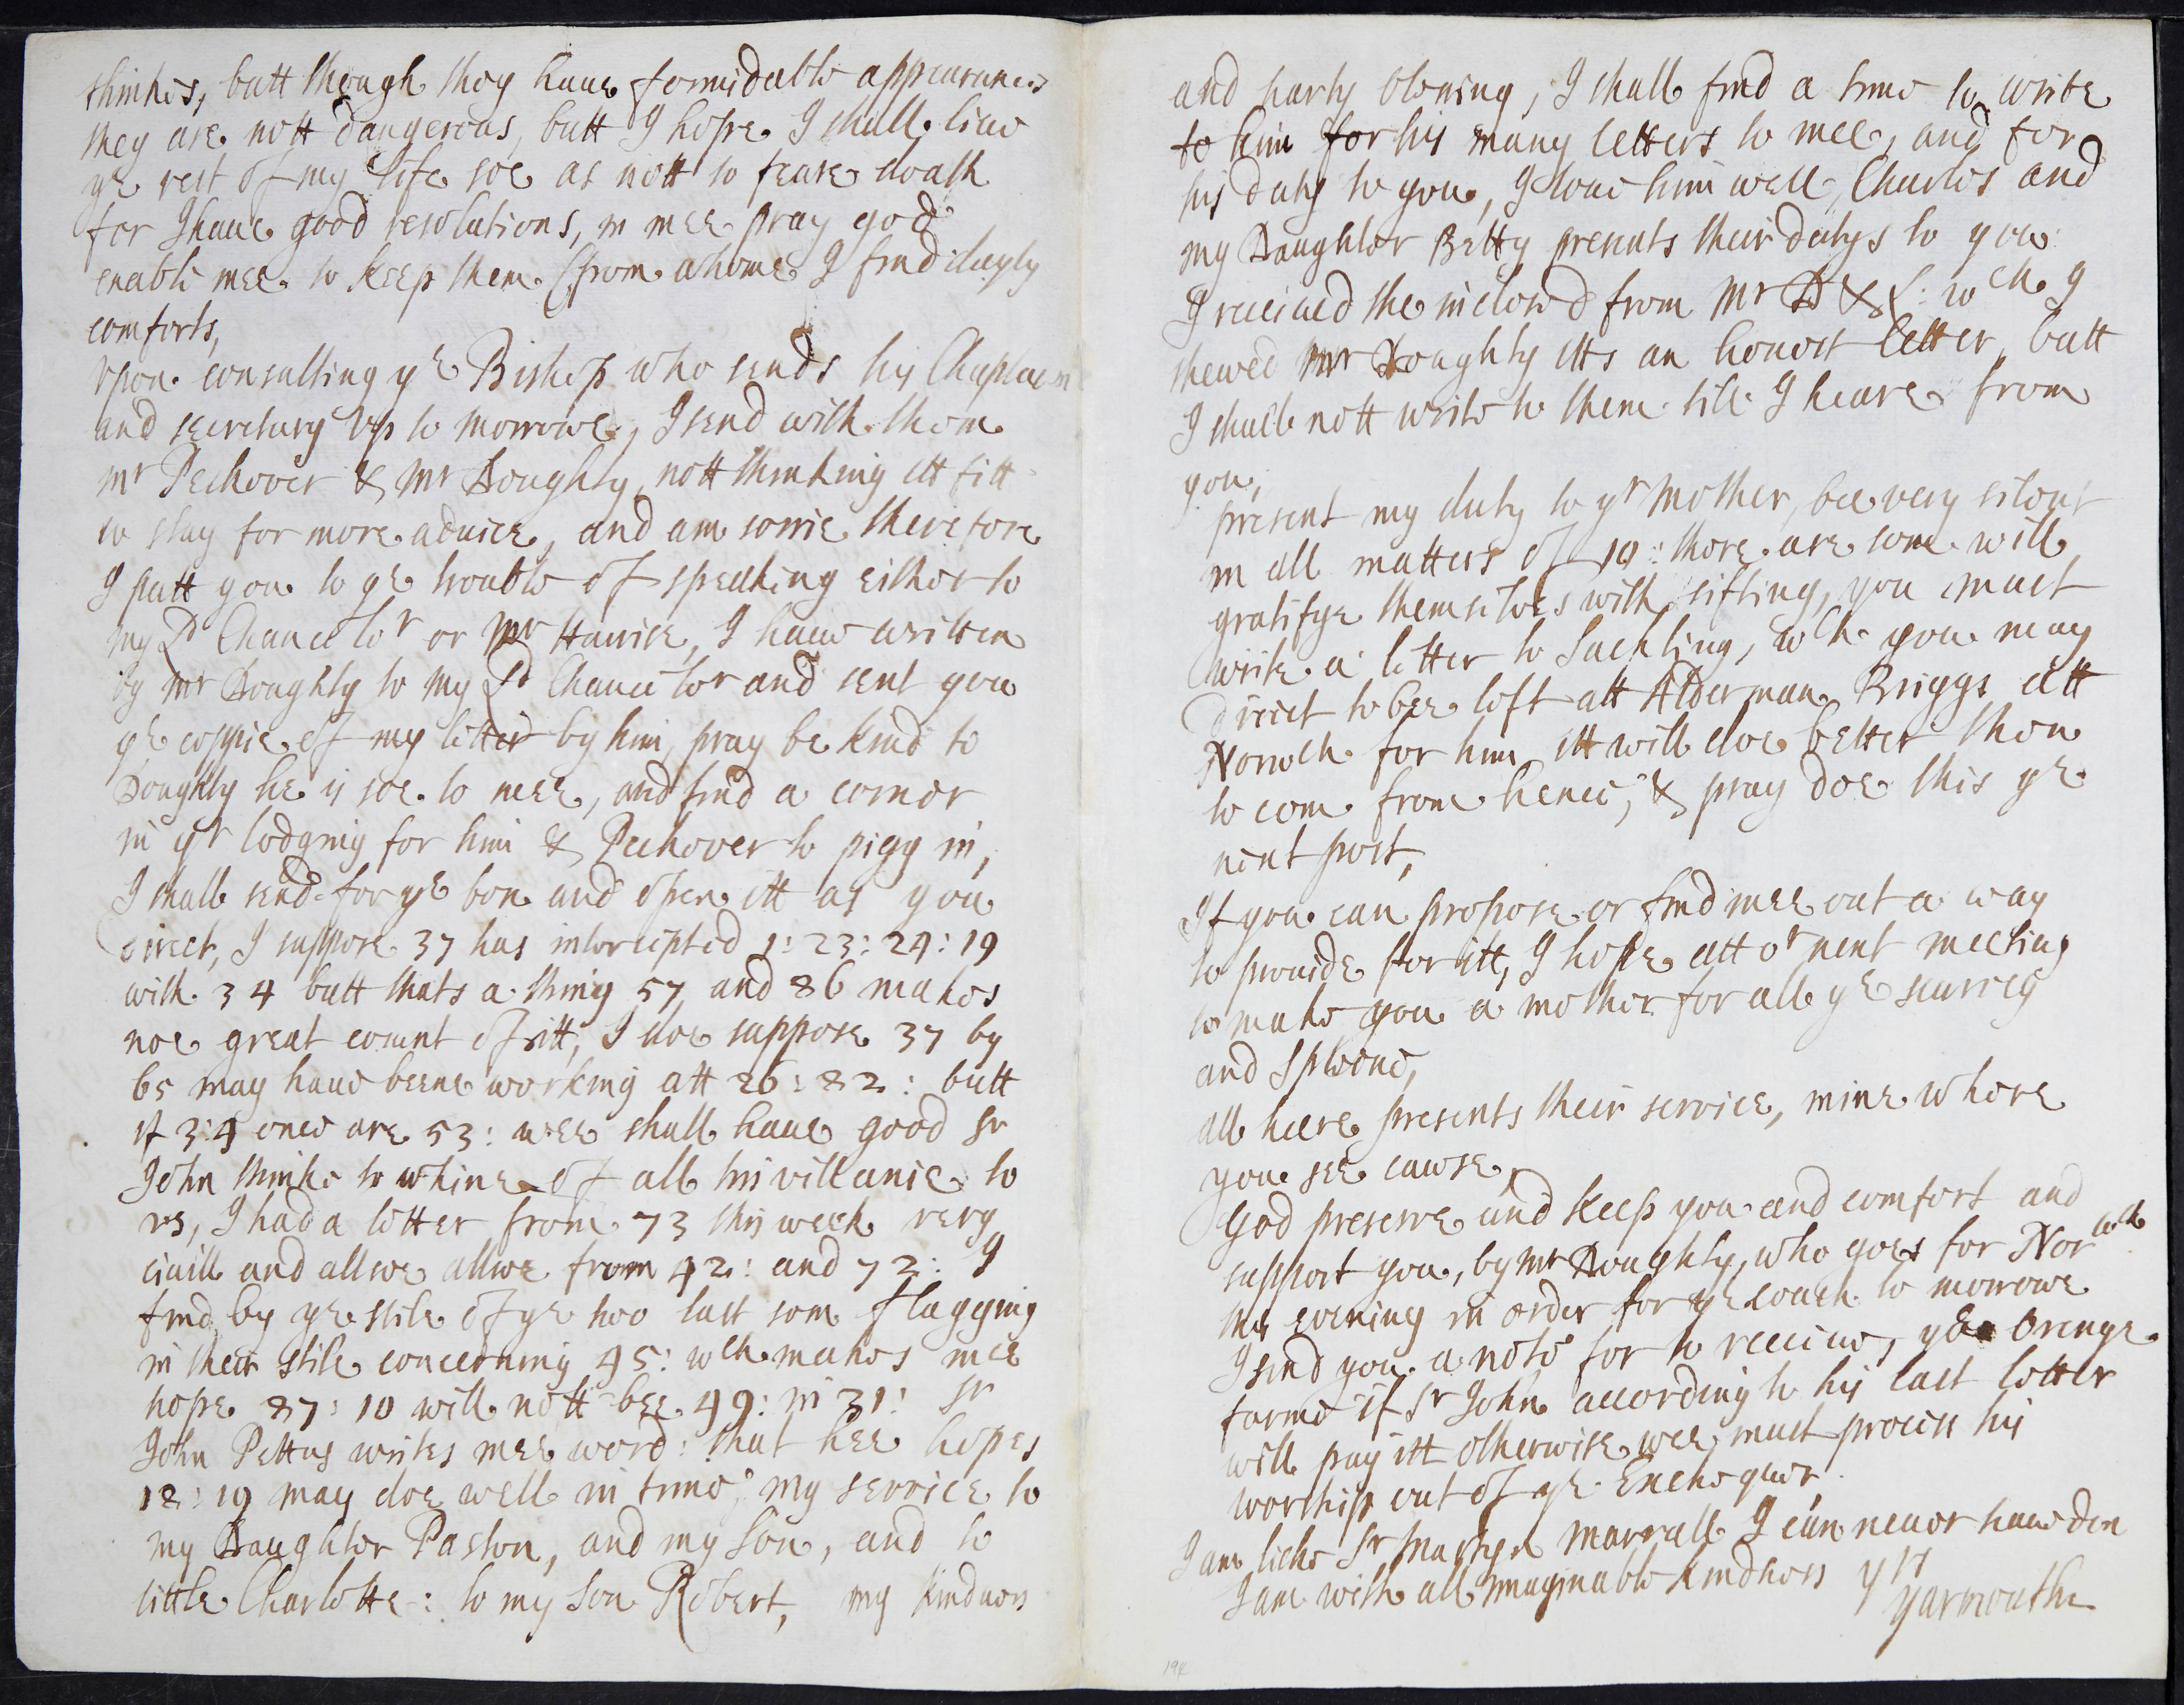 thinkes, butt though they haue formidable appearances
they are nott dangerous, butt I hope I shall liue
ye rest of my life soe as nott to feare death
for I haue good resolutions, in mee pray god
enable mee to keep them (from whome I find dayly
comforts,
Vpon consulting ye Bishop who sends his Chaplain
and secretary Vp to morrowe, I send with them
mr Peckover & mr Doughty, nott thinking itt fitt
to stay for more aduice, and am sorrie therefore
I putt you to ye trouble of speaking either to
my Ld Chancelor or mr Hawise, I haue written
by mr Doughty to my Ld Chancelor and sent you
ye coppie of my letter by him, pray be kind to
Doughty he is soe to mee, and find a corner
in yr lodging for him & Peckover to pigg in,
I shall send for ye box and open itt as you
direct, I suppose 37 has intercepted 1: 23: 24: 19
with 34 butt thats a thing 57 and 86 makes
noe great count of itt, I doe suppose 37 by
65 may haue beene working att 26: 82: butt
if 34 once are 53: wee shall haue good Sr
John thinke to whine of all his villanie to
vs, I had a letter from 73 this week very
ciuill and allsoe allsoe from 42: and 72: I
find by ye stile of ye two last som flagging
in their stile concerning 45: wch makes mee
hope 87: 10 will nott bee 49: in 31: Sr
John Pettus writes mee word: that hee hopes
18: 19 may doe well in time, my service to
my Daughter Paston, and my son, and to
little Charlotte: to my son Robert, my kindnes
and harty blessing, I shall find a time to write
to him for his many letters to mee, and for
his duty to you, I loue him well, Charles and
my Daughter Betty presents their dutys to you
I receiued the inclosed from Mr D & L: wch I
shewed mr Doughty itts an honest letter, butt
I shall nott write to them till I heare from
you,
present my duty to yr mother, bee very silent
in all matters of 10: there are some will
gratifye themselves with sifting, you must
write a letter to Suckling, wch you may
direct to bee left att Alderman Briggs att
Norwch for him, itt will doe better then
to com from hence, & pray doe this ye
next post,
If you can propose or find mee out a way
to prouide for itt, I hope att or next meeting
to make you a mother for all ye scurvey
and spleene,
all heere presents their service, mine where
you see cawse,
God preserve and keep you and comfort and
support you, by mr Doughty, who goes for Norwch
this evening in order for ye coach to morrowe
I send you a note for to receiue, ye Orenge
farme if Sr John according to his last letter
will pay itt otherwise wee must process his
worship out of ye Exchequer.
I am like Sr Martyn Marrall I can neuer haue don
I am with all imaginable kindness yrs
Yarmouth